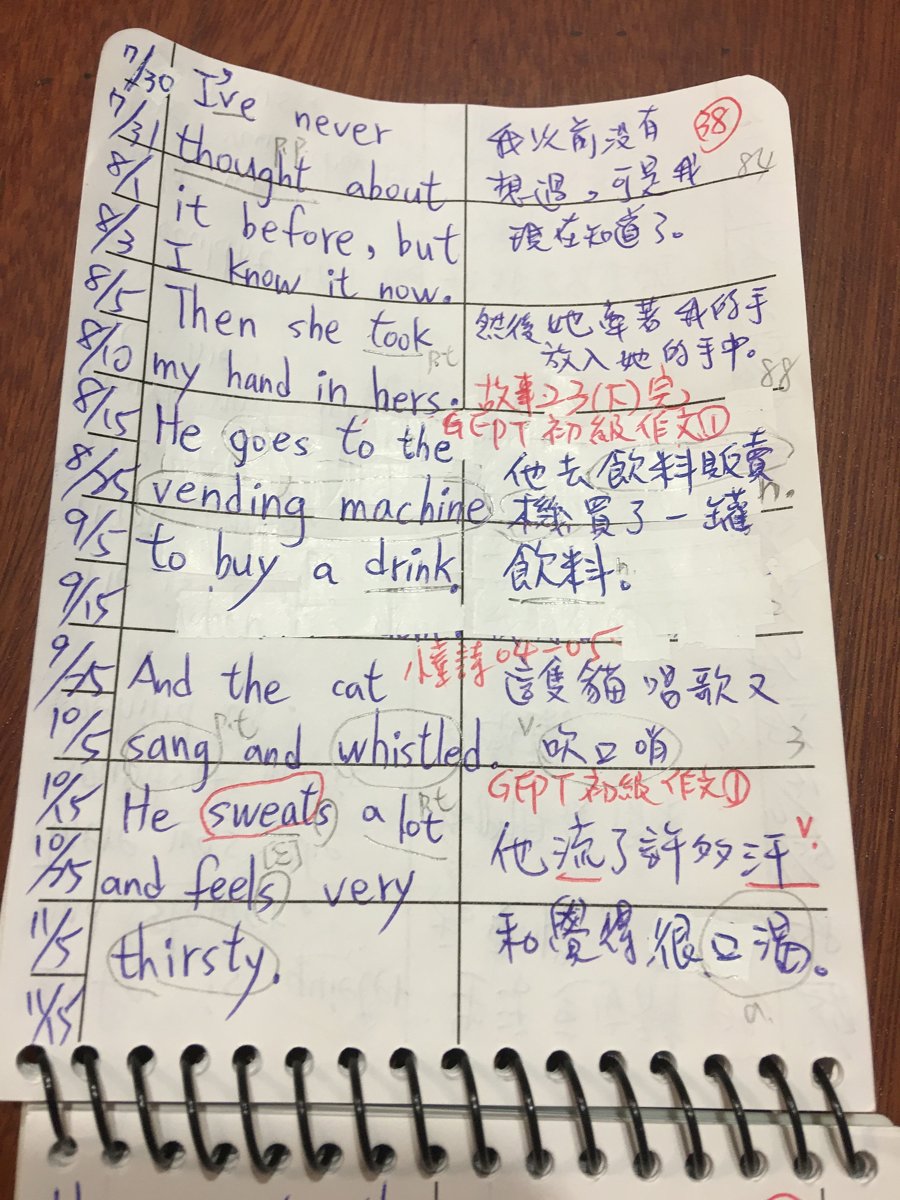 7/30
7/31
8/1
8/3
8/5
8/10
8/15
8/25
9/5
9/15
9/25
10/5
10/15
10/25
11/5
11/15
I've never
p.p
thought about
it before, but
I know it now.
Then she took
p.t
my hand in hers.
He goes to the
vending machine
to buy a drink.
And the cat
p.t
sang and whistled.
He sweats a lot
p.t
[z]
and feels very
thirsty.
38
我以前沒有
84
想過,可是我
現在知道了。
然後她牽著我的手
放入她的手中。
88
故事23(下)完
GEPT 初級作文①
他去飲料販賣
n.
機買了一罐
飲料。
n.
04-05
這隻貓唱歌又
v. 吹口哨
3
GEPT 初級作文①
v.
他流了許多汗
和覺得很口渴。
a.